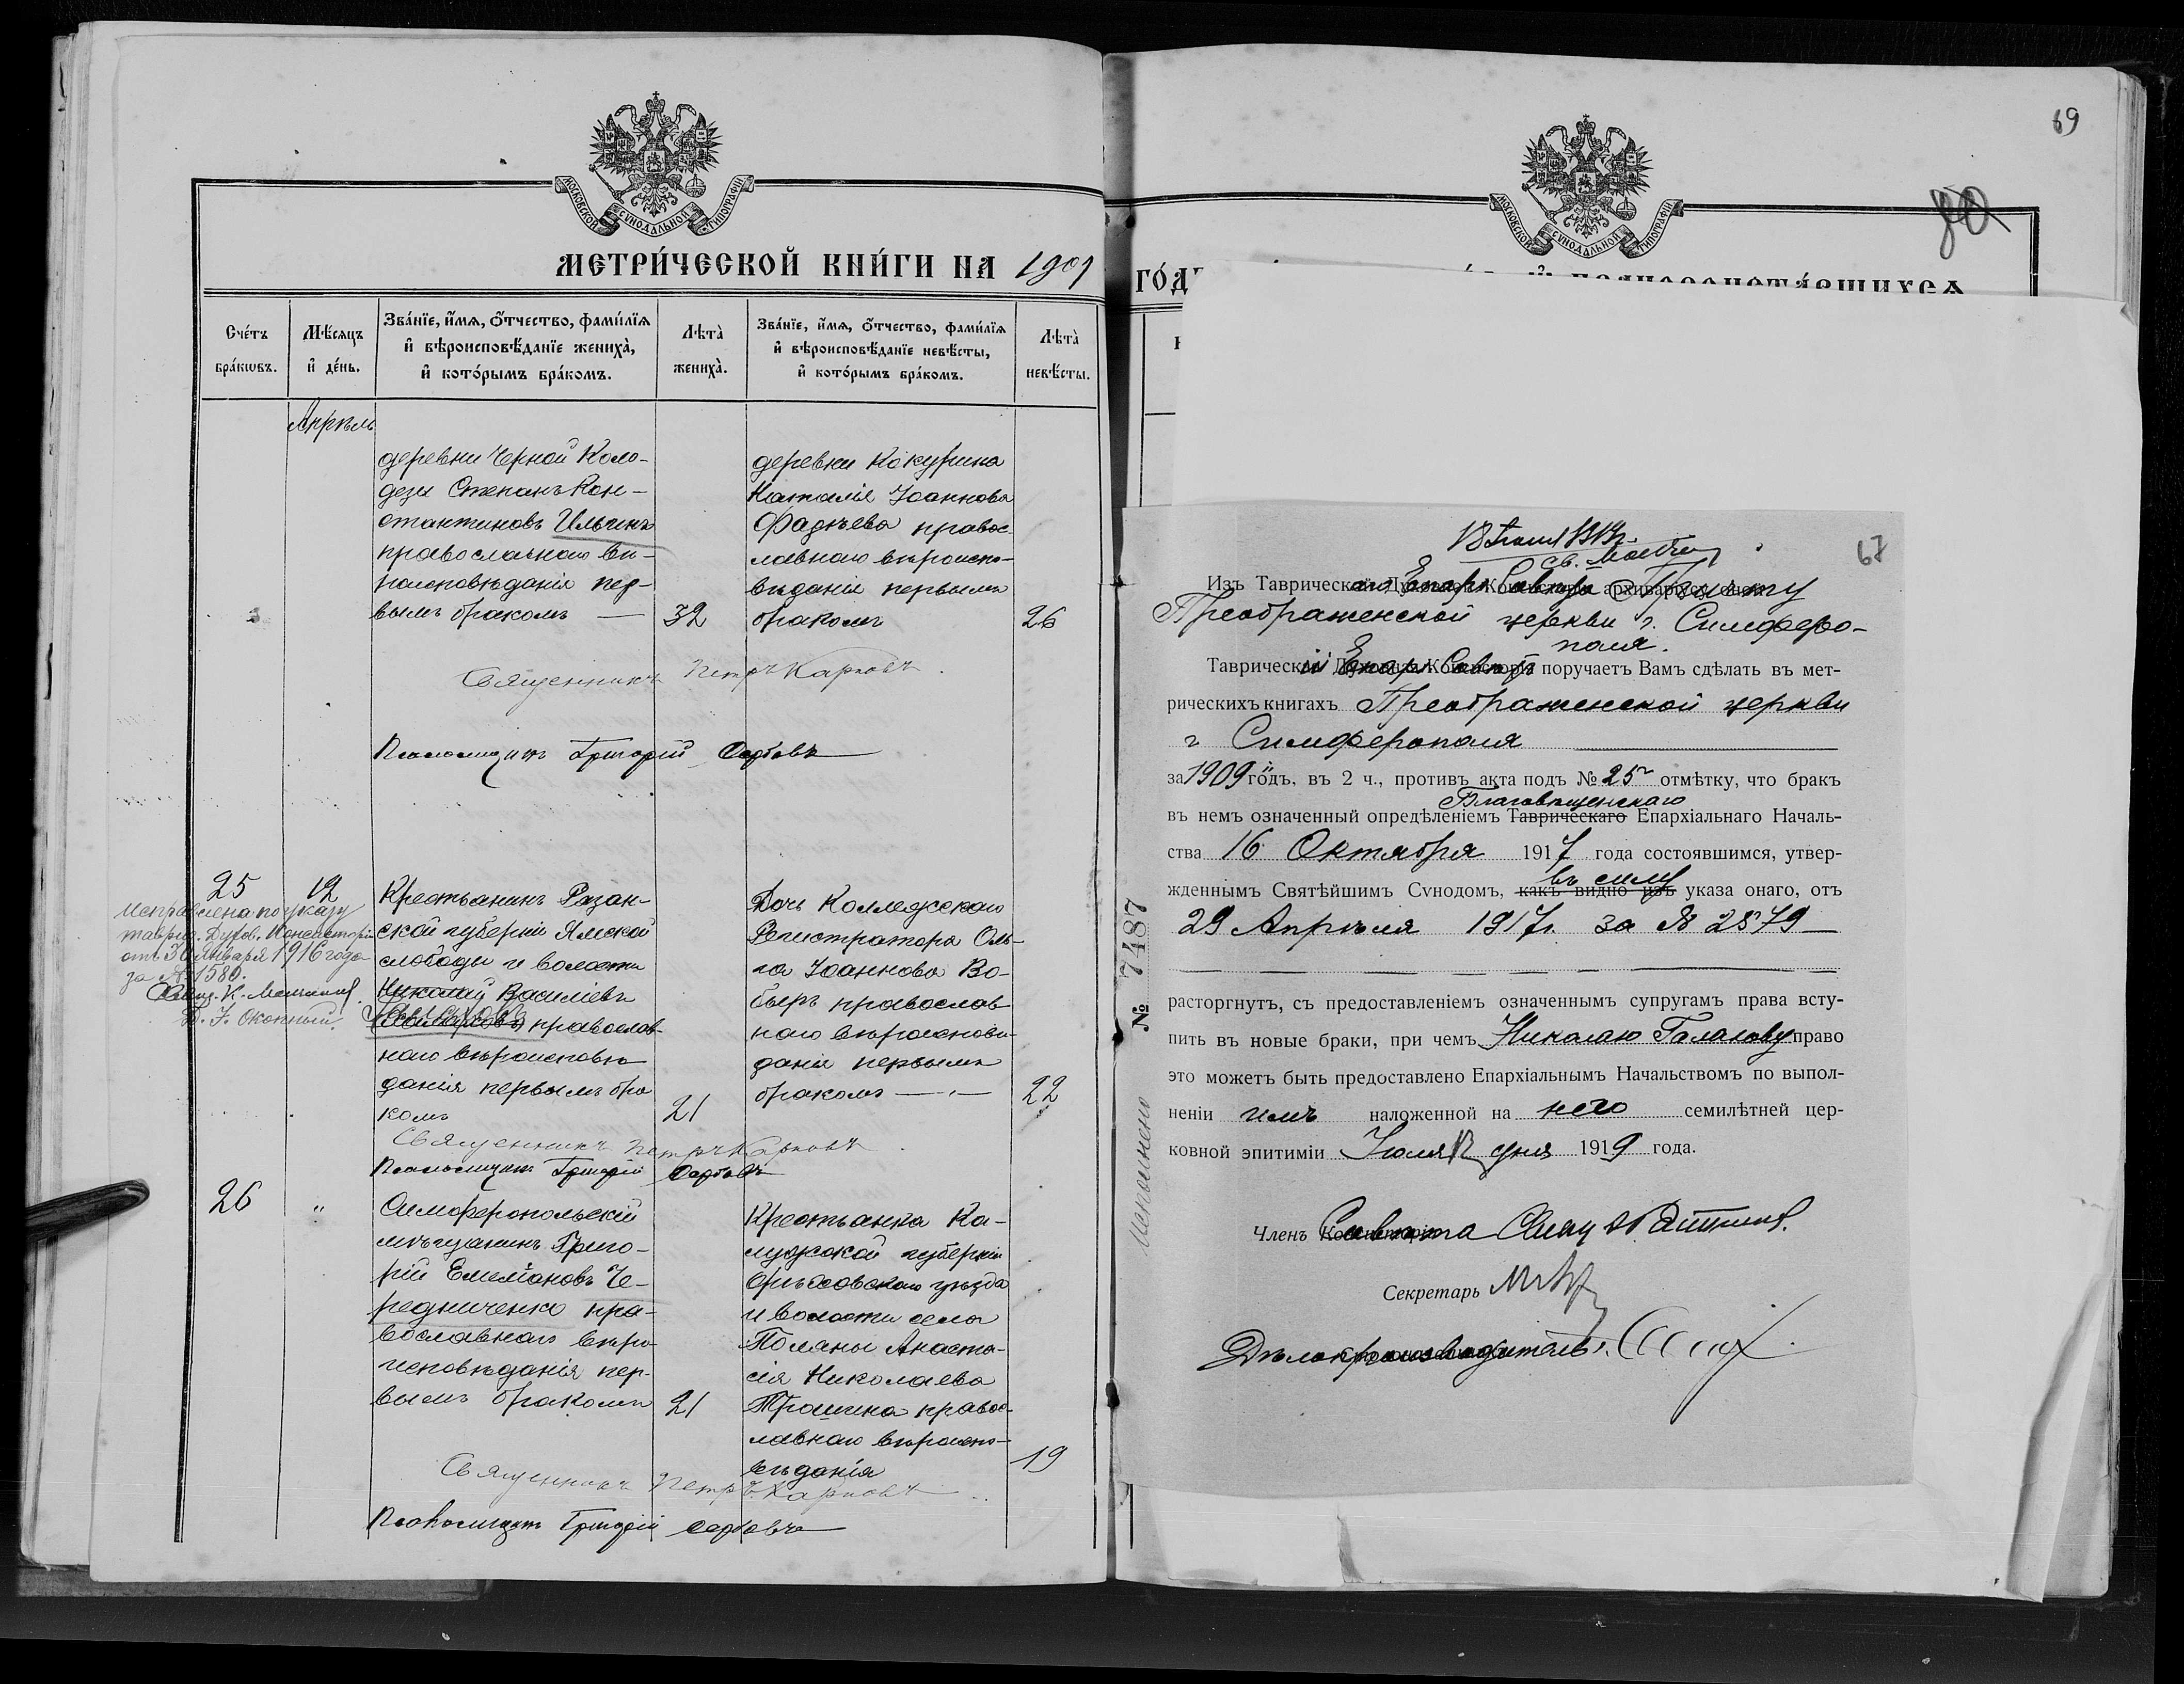 МОСКОВСКОЙ СѴНОДАЛЬНОЙ ТИПОГРАФІИ
МЕТРИ́ЧЕСКОЙ КНИ́ГИ НА 1909
Сче́тъ бра́кѡвъ.
Мѣ́сяцъ и҆ де́нь.
Зва́нїе, и҆́мѧ, ѻ҆́тчество, фами́лїѧ
и҆ вѣроисповѣ́данїе женихà,
и҆ кото́рымъ бра́комъ.
Лѣтà женихà.
Зва́нїе, и҆́мѧ, ѻ҆́тчество, фами́лїѧ
и҆ вѣроисповѣ́данїе невѣ́сты,
и҆ кото́рымъ бра́комъ.
Лѣтà невѣ́сты.
Апрѣль
деревни Черной Коло-
дези Степанъ Кон-
стантиновъ Ильинъ
православнаго вѣ-
роисповѣданія пер-
вымъ бракомъ — 32
деревни Кокурина
Наталія Іоаннова
Фадѣева правос-
лавнаго вѣроиспо-
вѣданія первымъ
бракомъ 26
Священникъ Петръ Карповъ.
Псаломщикъ Григорій Сербовъ
25 12
Исправлена по указу
таврич. Духов. Консисторіи
от 30 Января 1916 года
за № 1580.
Крестьянинъ Рязан-
ской губерніи Ямской
слободы и волости
Николай Василіевъ
православ-
наго вѣроисповѣ-
данія первымъ бра
комъ 21
Дочь Коллежскаго
Регистратора Оль-
га Іоаннова Во-
быръ православ-
наго вѣроисповѣ-
данія первымъ
бракомъ — 22
Священникъ Петръ Карповъ.
Псаломщикъ Григорій Сербовъ
26 "
Симферопольскій
мѣщанинъ Григо-
рій Емеліановъ Че-
редниченко пра-
вославнаго вѣро-
исповѣданія пер-
вымъ бракомъ 21
Крестьянка Ка-
лужской губерніи
уѣзда
и волости села
Поляны Анаста-
сія Николаева
Трошина правос-
лавнаго вѣроиспо-
вѣданія 19
Священникъ Петръ Карповъ
Псаломщикъ Григорій Сербовъ
69
80
МОСКОВСКОЙ СѴНОДАЛЬНОЙ ТИПОГРАФІИ
ГО́Д
67
Изъ Таврическаго Епарх. Совѣта Причту
Преображенской церкви г. Симферо-
поля.
Таврическій Епарх. Совѣтъ поручаетъ Вамъ сдѣлать въ мет-
рическихъ книгахъ Преображенской церкви
г Симферополя
за 1909 годъ, въ 2 ч., противъ акта подъ № 25 отмѣтку, что бракъ
Благовѣщенскаго
въ немъ означенный опредѣленіемъ Таврическаго Епархіальнаго Началь-
ства 16 Октября 1917 года состоявшимся, утвер-
въ силу
жденнымъ Святѣйшимъ Сѵнодомъ, какъ видно изъ указа онаго, отъ
29 Апрѣля 1917 г. за № 2879
расторгнутъ, съ предоставленіемъ означеннымъ супругамъ права всту-
пить въ новые браки, при чемъ Николаю Галахову право
это можетъ быть предоставлено Епархіальнымъ Начальствомъ по выпол-
неніи имъ наложенной на него семилѣтней цер-
ковной эпитиміи Іюля 12 дня 1919 года.
Членъ Совѣта Свящ.
Секретарь
Дѣлопроизводитель
№ 7487
Исполнено